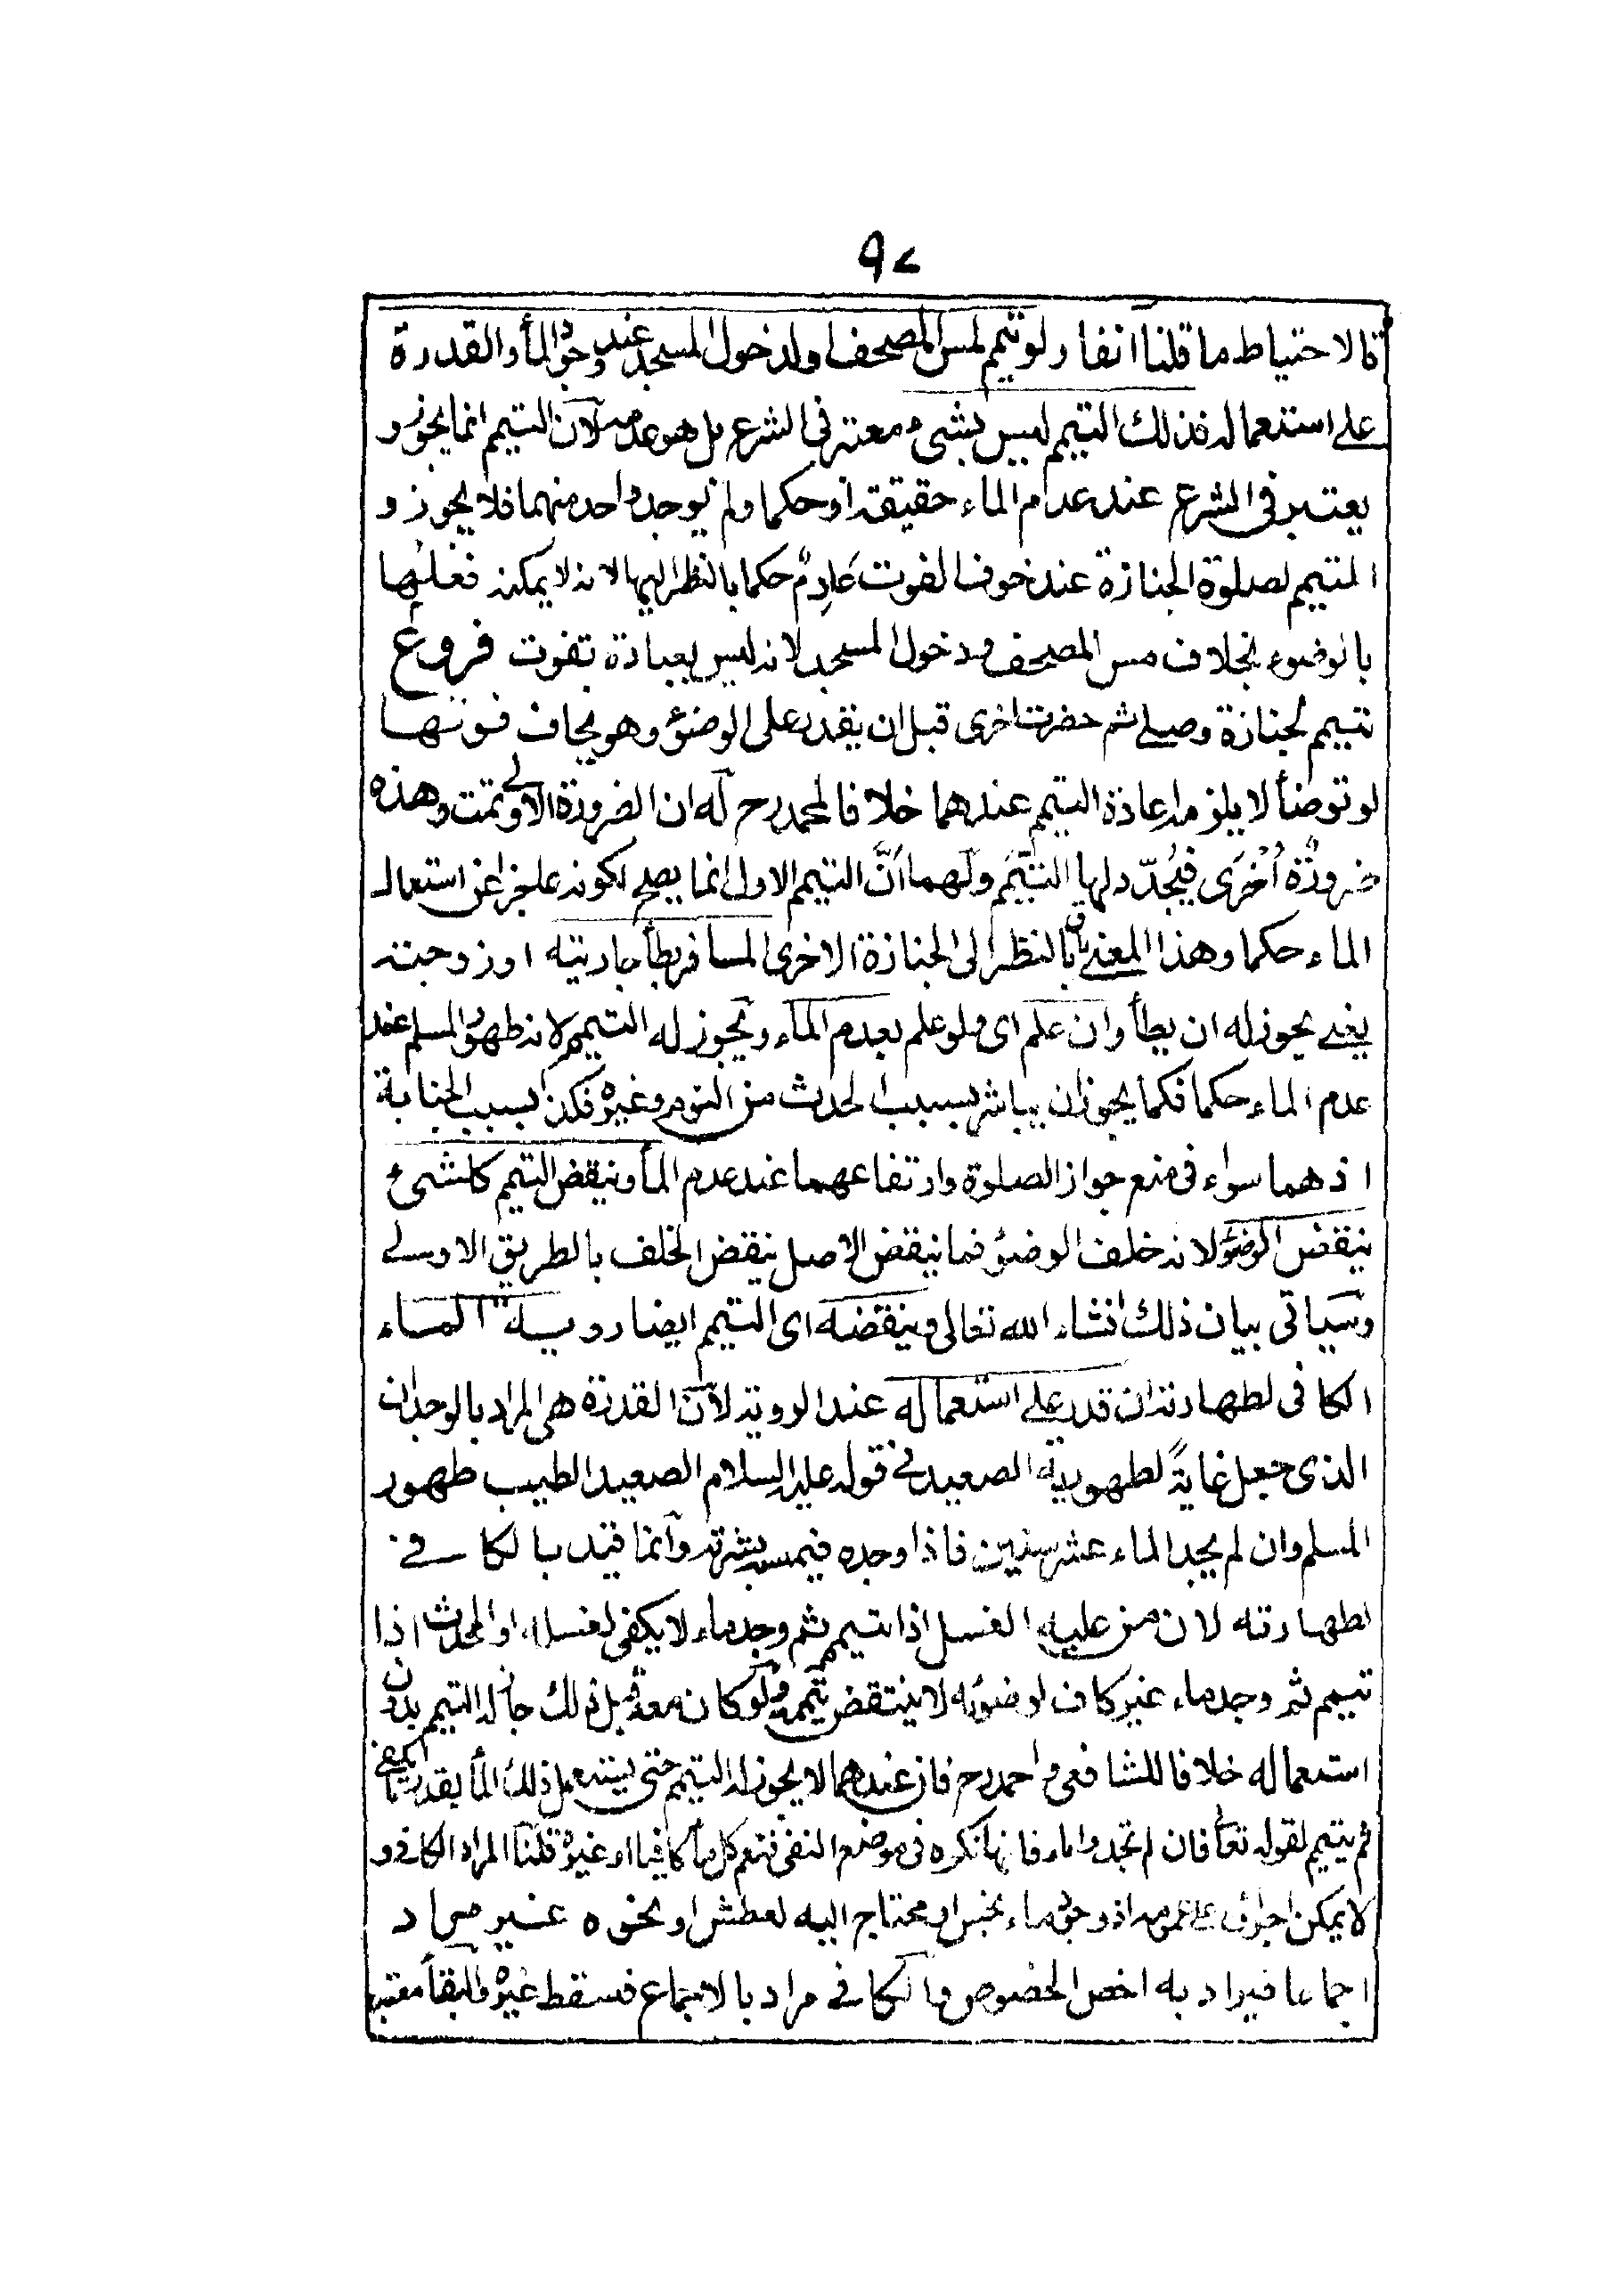 ٩٧
فالاحتياط ما قلنا انفا ولو تيمم لمس المصحف او لدخول المسجد عند وجود الماء والقدرة
على استعماله فذلك التيمم ليس بشيء معتبر في الشرع بل هو عدم لان التيمم انما يجوز و
يعتبر في الشرع عند عدم الماء حقيقة او حكما ولم يوجد واحد منهما فلا يجوز و
المتيمم لصلوة الجنازة عند خوف الفوت عادم حكما بالنظر اليها لانه لا يمكنه فعلها
بالوضوء بخلاف مس المصحف ودخول المسجد لانه ليس بعبادة تفوت فروع
تيمم لجنازة وصلى ثم حضرت اخرى قبل ان يقدر على الوضوء وهو يخاف فوتها
لو توضأ لا يلزمه اعادة التيمم عندهما خلافا لمحمد رح له ان الضرورة الاولى تمت وهذه
ضرورة اخرى فيجدد لها التيمم ولهما ان التيمم الاول انما يصح لكونه عاجزا عن استعمال
الماء حكما وهذا المعنى باق بالنظر الى الجنازة الاخرى المسافر يطأ جاريته او زوجته
يعني يجوز له ان يطأ وان علم اي ولو علم بعدم الماء ويجوز له التيمم لانه طهور المسلم عند
عدم الماء حكما فكما يجوز ان يباشر بسبب الحدث من النوم وغيره فكذا بسبب الجنابة
اذ هما سواء في منع جواز الصلوة وارتفاعهما عند عدم الماء وينقض التيمم كل شيء
ينقض الوضوء لانه خلف الوضوء فما ينقض الاصل ينقض الخلف بالطريق الاولى
وسياتي بيان ذلك انشاء الله تعالى وينقضه اي التيمم ايضا روية الماء
الكافي لطهارته ان قدر على استعماله عند الروية لان القدرة هي المراد بالوجدان
الذي جعل غاية لطهورية الصعيد في قوله عليه السلام الصعيد الطيب طهور
المسلم وان لم يجد الماء عشر سنين فاذا وجده فيمسه بشرته وانما قيد بالكافي
لطهارته لان من عليه الغسل اذا تيمم ثم وجد ماء لا يكفي لغسله او المحدث اذا
تيمم ثم وجد ماء غير كاف لوضوئه لا ينتقض تيممه ولو كان معه قبل ذلك جاز له التيمم بدون
استعماله خلافا للشافعي واحمد رح فان عندهما لا يجوز له التيمم حتى يستعمل ذلك الماء بقدر ما يكفي
ثم يتيمم لقوله تعا فان لم تجدوا ماء فانها نكرة في موضع النفي فتعم كل ماء كافيا او غيره قلنا المراد الكافي و
لا يمكن اجراؤه على عمومه اذ وجود ماء نجس او محتاج اليه لعطش او نحوه غير مراد
اجماعا فيراد به اخص الخصوص والكافي مراد بالاجماع فسقط غيره والبقاء معتبر